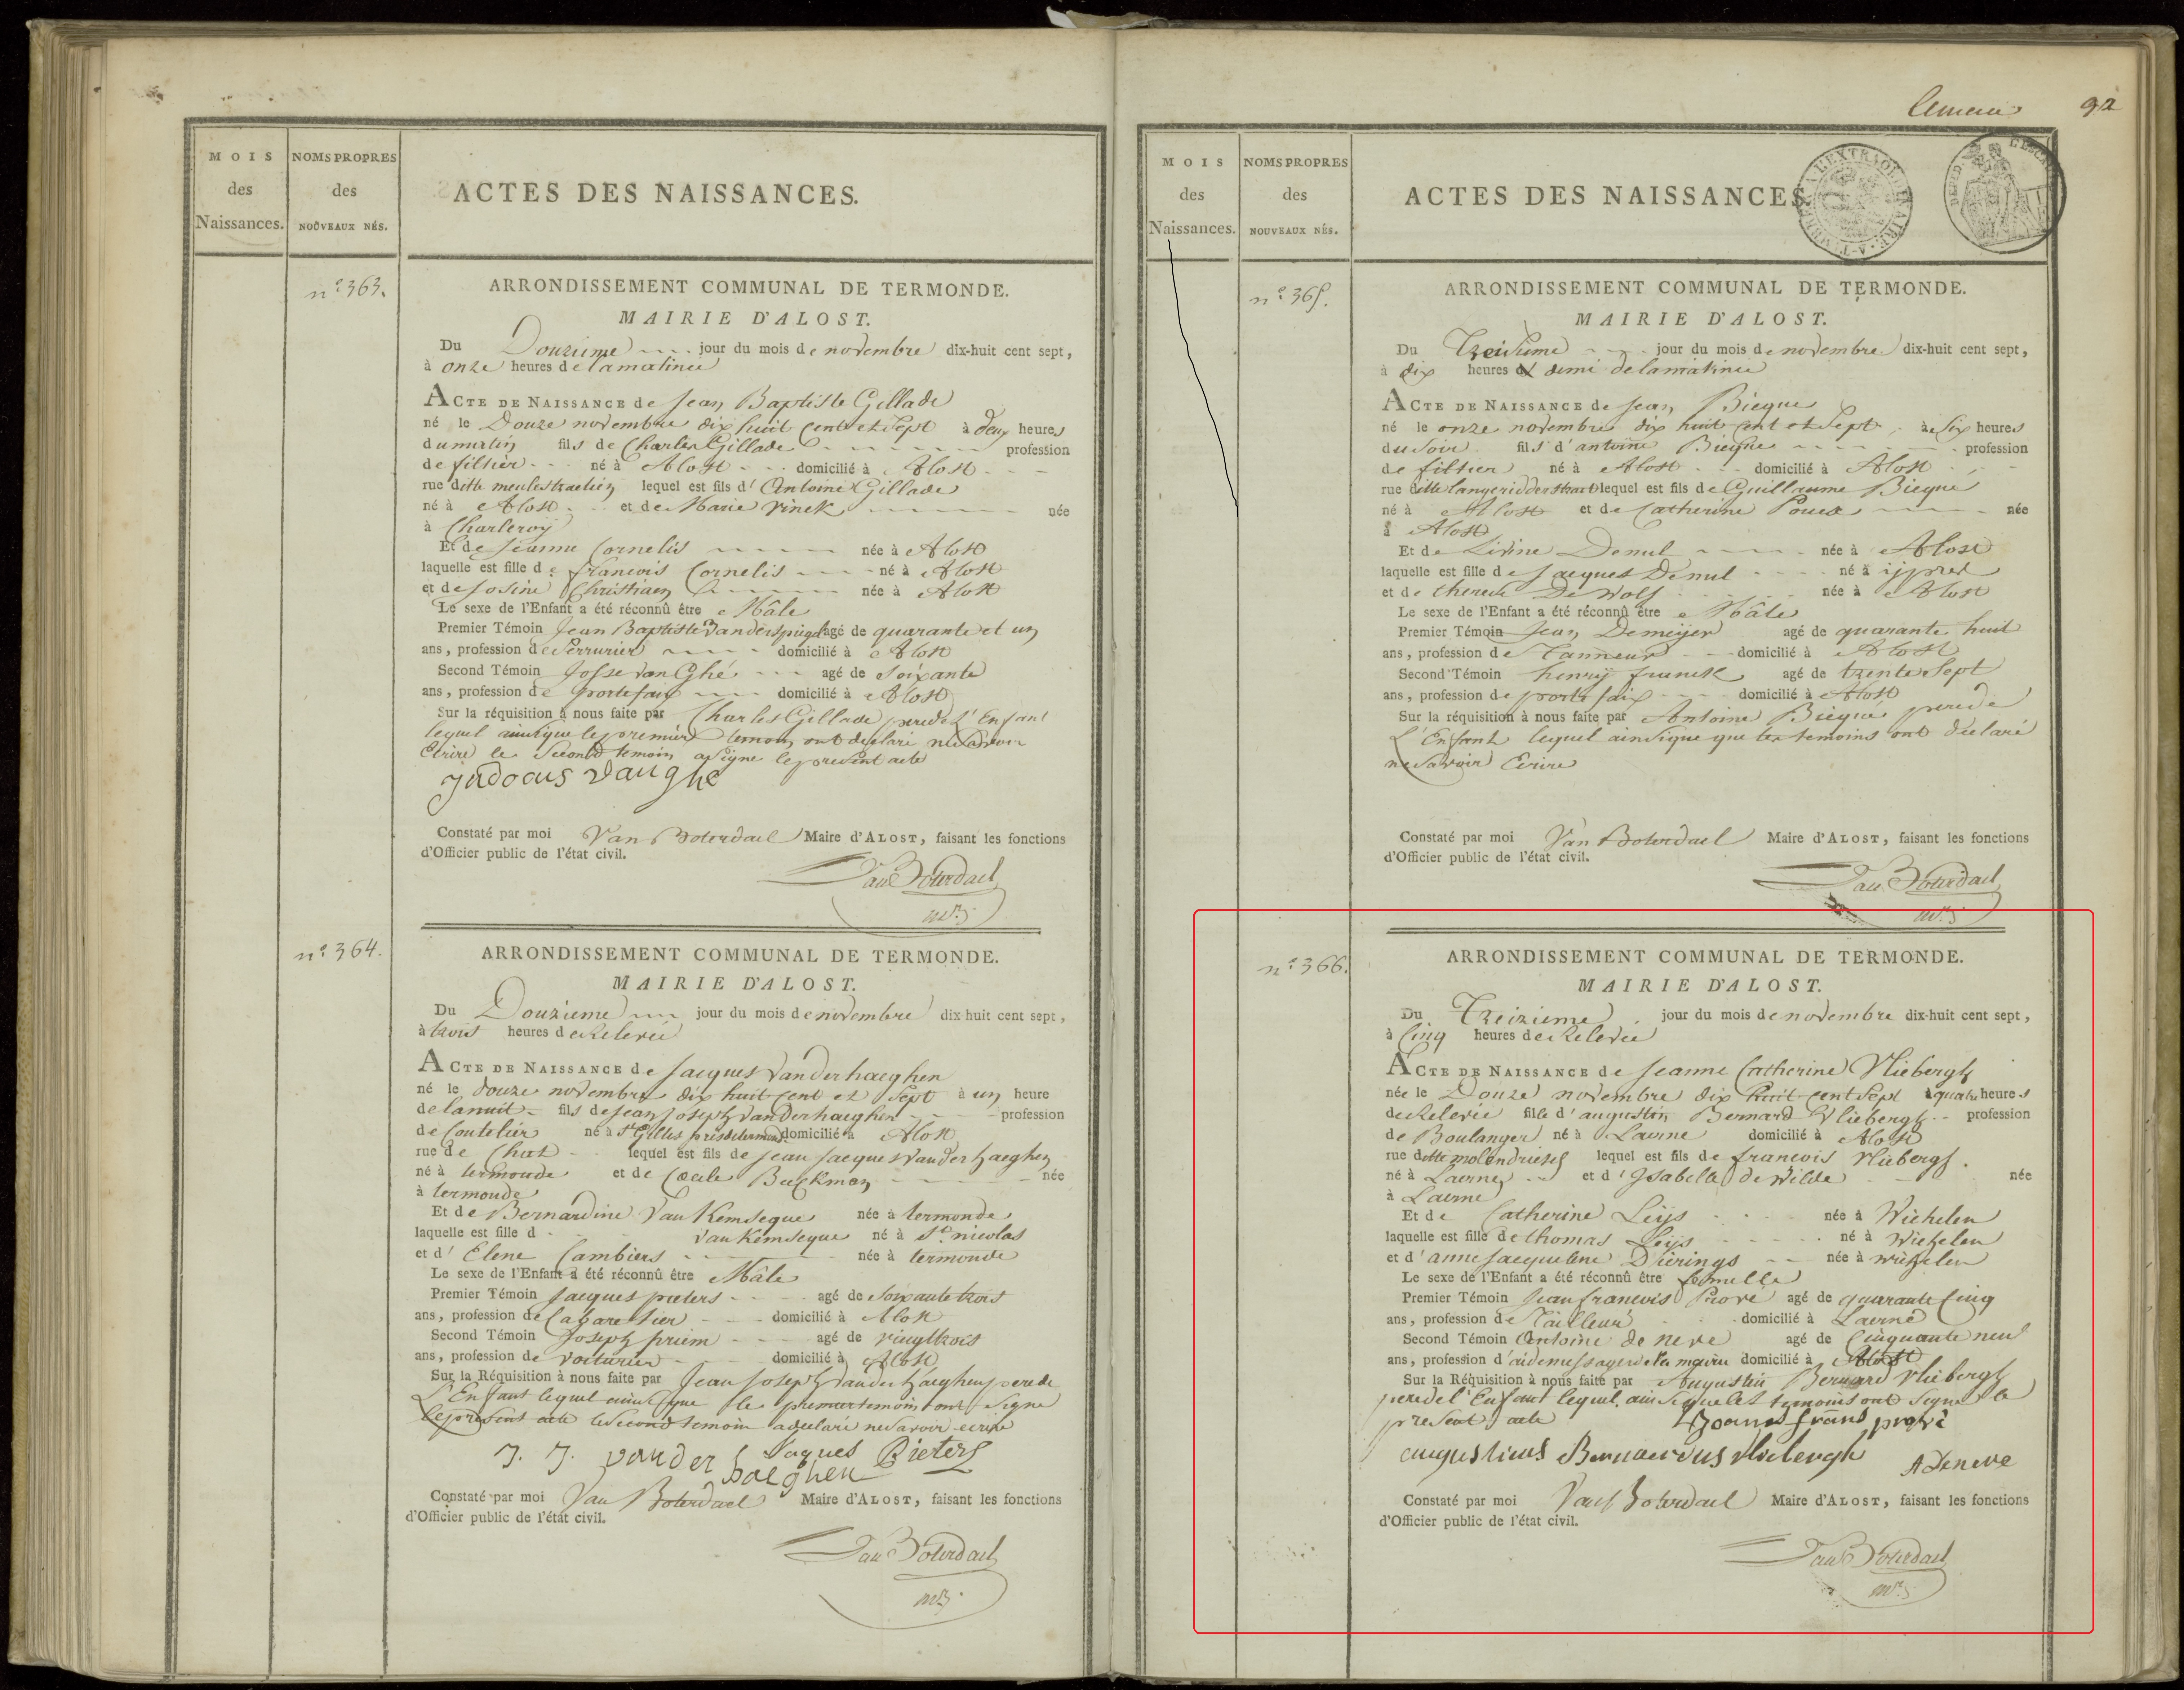 Lemeau
92
MOIS
des
Naissances.
NOMS PROPRES
des
NOUVEAUX NÉS.
ACTES DES NAISSANCES.
n.º 363.
ARRONDISSEMENT COMMUNAL DE TERMONDE.
MAIRIE D'ALOST.
Du Douzieme jour du mois de novembre dix-huit cent sept,
à onze heures de la matinée
ACTE DE NAISSANCE de Jean Baptiste Gillade
né le Douze novembre dix huit cent et sept à deux heures
du matin fils de Charles Gillade profession
de filtier né à Alost domicilié à Alost
rue ditte meulestraetien lequel est fils d'Antoine Gillade
né à Alost et de Marie Vinck née
à Charleroÿ
Et de Jeanne Cornelis née à Alost
laquelle est fille de francois Cornelis né à Alost
et de Josine Christiaen née à Alost
Le sexe de l'Enfant a été réconnû être Mâle
Premier Témoin Jean Baptiste Vanderspiegel agé de quarante et un
ans, profession de Serrurier domicilié à Alost
Second Témoin Josse Van Ghé agé de soixante
ans, profession de portefaix domicilié à Alost
Sur la réquisition à nous faite par Charles Gillade pere de L'Enfant
lequel ainsique le premier temoin ont declaré ne savoir
Ecrire le second temoin a signe le present acte
Judocus Vanghe
Constaté par moi Van Boterdael Maire d'ALOST, faisant les fonctions
d'Officier public de l'état civil.
Van Boterdael
n.º 364.
ARRONDISSEMENT COMMUNAL DE TERMONDE.
MAIRIE D'ALOST.
Du Douzieme jour du mois de novembre dix huit cent sept,
à trois heures de Relevée
ACTE DE NAISSANCE de Jacques Vanderhaeghen
né le douze novembre dix huit cent et Sept à un heure
de la nuit fils de Jean Joseph Vanderhaeghen profession
de Coutelier né à St Gilles pres de termonde domicilié à Alost
rue de Chat lequel est fils de Jean Jacques Vanderhaeghen
né à termonde et de Cecile Buckman née
à termonde
Et de Bernardine Van Kemseque née à termonde
laquelle est fille d van Kemseque né à St. nicolas
et d' Elene Cambiers née à termonde
Le sexe de l'Enfant a été réconnû être Mâle
Premier Témoin Jacques pieters agé de soixante trois
ans, profession de Cabaretier domicilié à Alost
Second Témoin Joseph priem agé de vingt trois
ans, profession de voiturier domicilié à Alost
Sur la Réquisition à nous faite par Jean Joseph Vanderhaeghen pere de
L'Enfant lequel ainsique le premier temoin ont signe
le present acte le second temoin a declaré ne savoir ecrire
J. J. vander haeghen Jaques Pieters
Constaté par moi Van Boterdael Maire d'ALOST, faisant les fonctions
d'Officier public de l'état civil.
Van Boterdael
MOIS
des
Naissances.
NOMS PROPRES
des
NOUVEAUX NÉS.
ACTES DES NAISSANCES
n.º 365.
ARRONDISSEMENT COMMUNAL DE TERMONDE.
MAIRIE D'ALOST.
Du Treizieme jour du mois de novembre dix-huit cent sept,
à dix heures et demi de la matinée
ACTE DE NAISSANCE de Jean Biegne
né le onze novembre dix huit cent et Sept à Six heures
du soir fils d'antoine Biegne profession
de filtier né à Alost domicilié à Alost
rue ditte langeridderstraet lequel est fils de Guillaume Biegne
né à Alost et de Catherine née
à Alost
Et de Livine Demul née à Alost
laquelle est fille de Jacques Demul né à ijpres
et de therese De Wolf née à Alost
Le sexe de l'Enfant a été réconnû être Mâle
Premier Témoin Jean Demeijer agé de quarante huit
ans, profession de Tanneur domicilié à Alost
Second Témoin henrij franck agé de trente Sept
ans, profession de porte faix domicilié à Alost
Sur la réquisition à nous faite par Antoine Biegne pere de
L'Enfant lequel ainsique que les temoins ont declaré
ne savoir Ecrire
Constaté par moi Van Boterdael Maire d'ALOST, faisant les fonctions
d'Officier public de l'état civil.
Van Boterdael
n.º 366.
ARRONDISSEMENT COMMUNAL DE TERMONDE.
MAIRIE D'ALOST.
Du Treizieme jour du mois de novembre dix-huit cent sept,
à Cinq heures de Relevée
ACTE DE NAISSANCE de Jeanne Catherine Vliebergh
née le Douze novembre dix huit cent sept à quatre heures
de Relevée fille d'augustin Bernard Vliebergh profession
de Boulanger né à Laerne domicilié à Alost
rue ditte molendriesch lequel est fils de francois Vliebergh
né à Laerne et d'Isabelle de Wilde née
à Laerne
Et de Catherine Leijs née à Wichelen
laquelle est fille de thomas Leijs né à Wichelen
et d'anne Jacqueline Dierings née à wichelen
Le sexe de l'Enfant a été réconnû être femelle
Premier Témoin Jean francois Prové agé de quarante Cinq
ans, profession de Tailleur domicilié à Laerne
Second Témoin Antoine de neve agé de Cinquante neuf
ans, profession d'aide messager de la mairie domicilié à Alost
Sur la Réquisition à nous faite par Augustin Bernard Vliebergh
pere de l'Enfant lequel ainsique les temoins ont signe le
present acte Joannes frans prové
augustinus Bernaerdus vliebergh A Deneve
Constaté par moi Van Boterdael Maire d'ALOST, faisant les fonctions
d'Officier public de l'état civil.
Van Boterdael